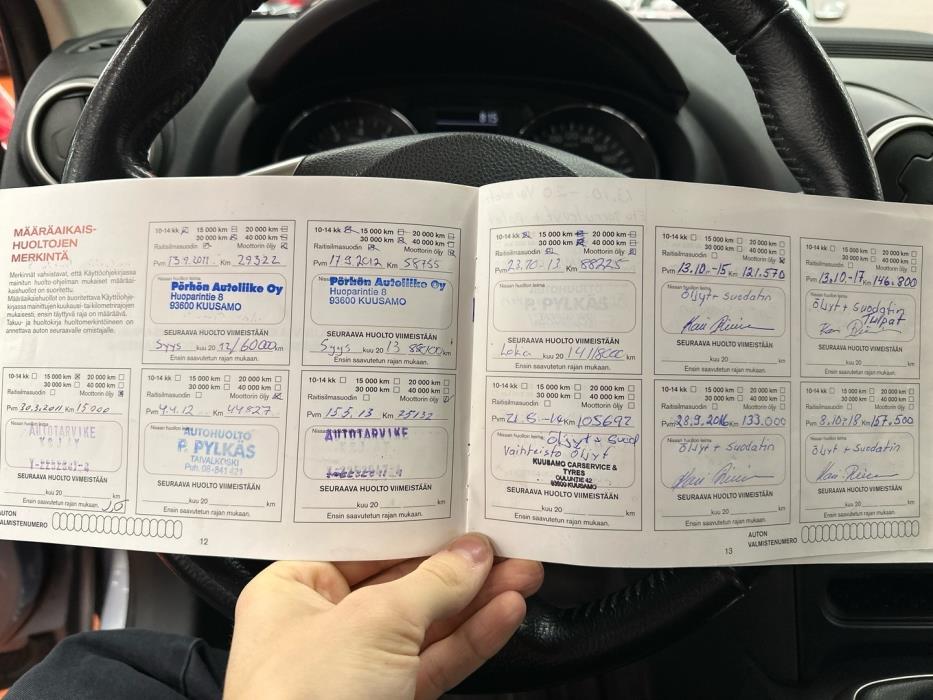 MÄÄRÄAIKAIS-
HUOLTOJEN
MERKINTÄ
Merkinnät vahvistavat, että Käyttöohjekirjassa
mainitun huolto-ohjelman mukaiset määräai-
kaishuollot on suoritettu.
Määräaikaishuollot on suoritettava Käyttöohje-
kirjassa mainittujen kuukausi- tai kilometrirajojen
mukaisesti, ensin täyttyvä raja on määräävä.
Takuu- ja huoltokirja huoltomerkintöineen on
annettava auton seuraavalle omistajalle.
10-14 kk 15 000 km 20 000 km
30 000 km 40 000 km
Raitisilmasuodin Moottorin öljy
Pvm 13.9.2011 Km 29322
Nissan huolto leima
Pörhön Autoliike Oy
Huoparintie 8
93600 KUUSAMO
SEURAAVA HUOLTO VIIMEISTÄÄN
Syys kuu 20 12/60000 km
Ensin saavutetun rajan mukaan.
10-14 kk 15 000 km 20 000 km
30 000 km 40 000 km
Raitisilmasuodin Moottorin öljy
Pvm 17.9.2012 Km 58755
Nissan huolto leima
Pörhön Autoliike Oy
Huoparintie 8
93600 KUUSAMO
SEURAAVA HUOLTO VIIMEISTÄÄN
Syys kuu 20 13 km
Ensin saavutetun rajan mukaan.
10-14 kk 15 000 km 20 000 km
30 000 km 40 000 km
Raitisilmasuodin Moottorin öljy
Pvm 30.3.2011 Km 15000
Nissan huolto leima
AUTOTARVIKE
SEURAAVA HUOLTO VIIMEISTÄÄN
kuu 20 km
Ensin saavutetun rajan mukaan.
10-14 kk 15 000 km 20 000 km
30 000 km 40 000 km
Raitisilmasuodin Moottorin öljy
Pvm 4.4.12 Km 44827
Nissan huolto leima
AUTOHUOLTO
P. PYLKÄS
TAIVALKOSKI
Puh. 08-841 421
SEURAAVA HUOLTO VIIMEISTÄÄN
kuu 20 km
Ensin saavutetun rajan mukaan.
10-14 kk 15 000 km 20 000 km
30 000 km 40 000 km
Raitisilmasuodin Moottorin öljy
Pvm 15.5.13 Km 75132
Nissan huolto leima
AUTOTARVIKE
SEURAAVA HUOLTO VIIMEISTÄÄN
kuu 20 km
Ensin saavutetun rajan mukaan.
AUTON
VALMISTENUMERO
12
10-14 kk 15 000 km 20 000 km
30 000 km 40 000 km
Raitisilmasuodin Moottorin öljy
Pvm 23.10-13 Km 88225
Nissan huolto leima
SEURAAVA HUOLTO VIIMEISTÄÄN
Loka kuu 20 14 km
Ensin saavutetun rajan mukaan.
10-14 kk 15 000 km 20 000 km
30 000 km 40 000 km
Raitisilmasuodin Moottorin öljy
Pvm 13.10.-15 Km 121.570
Nissan huolto leima
öljyt + suodatin
SEURAAVA HUOLTO VIIMEISTÄÄN
kuu 20 km
Ensin saavutetun rajan mukaan.
10-14 kk 15 000 km 20 000 km
30 000 km 40 000 km
Raitisilmasuodin Moottorin öljy
Pvm 13.10-17 Km 146.800
Nissan huolto leima
öljyt + suodatin
Tulpat
SEURAAVA HUOLTO VIIMEISTÄÄN
kuu 20 km
Ensin saavutetun rajan mukaan.
10-14 kk 15 000 km 20 000 km
30 000 km 40 000 km
Raitisilmasuodin Moottorin öljy
Pvm Km 105692
Nissan huolto leima öljyt + suod
vaihteisto öljyt
KUUSAMO CARSERVICE &
TYRES
OULUNTIE 42
93600 KUUSAMO
SEURAAVA HUOLTO VIIMEISTÄÄN
kuu 20 km
Ensin saavutetun rajan mukaan.
10-14 kk 15 000 km 20 000 km
30 000 km 40 000 km
Raitisilmasuodin Moottorin öljy
Pvm 28.9.2016 Km 133.000
Nissan huolto leima
öljyt + suodatin
SEURAAVA HUOLTO VIIMEISTÄÄN
kuu 20 km
Ensin saavutetun rajan mukaan.
10-14 kk 15 000 km 20 000 km
30 000 km 40 000 km
Raitisilmasuodin Moottorin öljy
Pvm 8.10-18 Km 157.500
Nissan huolto leima
öljyt + suodatin
SEURAAVA HUOLTO VIIMEISTÄÄN
kuu 20 km
Ensin saavutetun rajan mukaan.
AUTON
VALMISTENUMERO
13